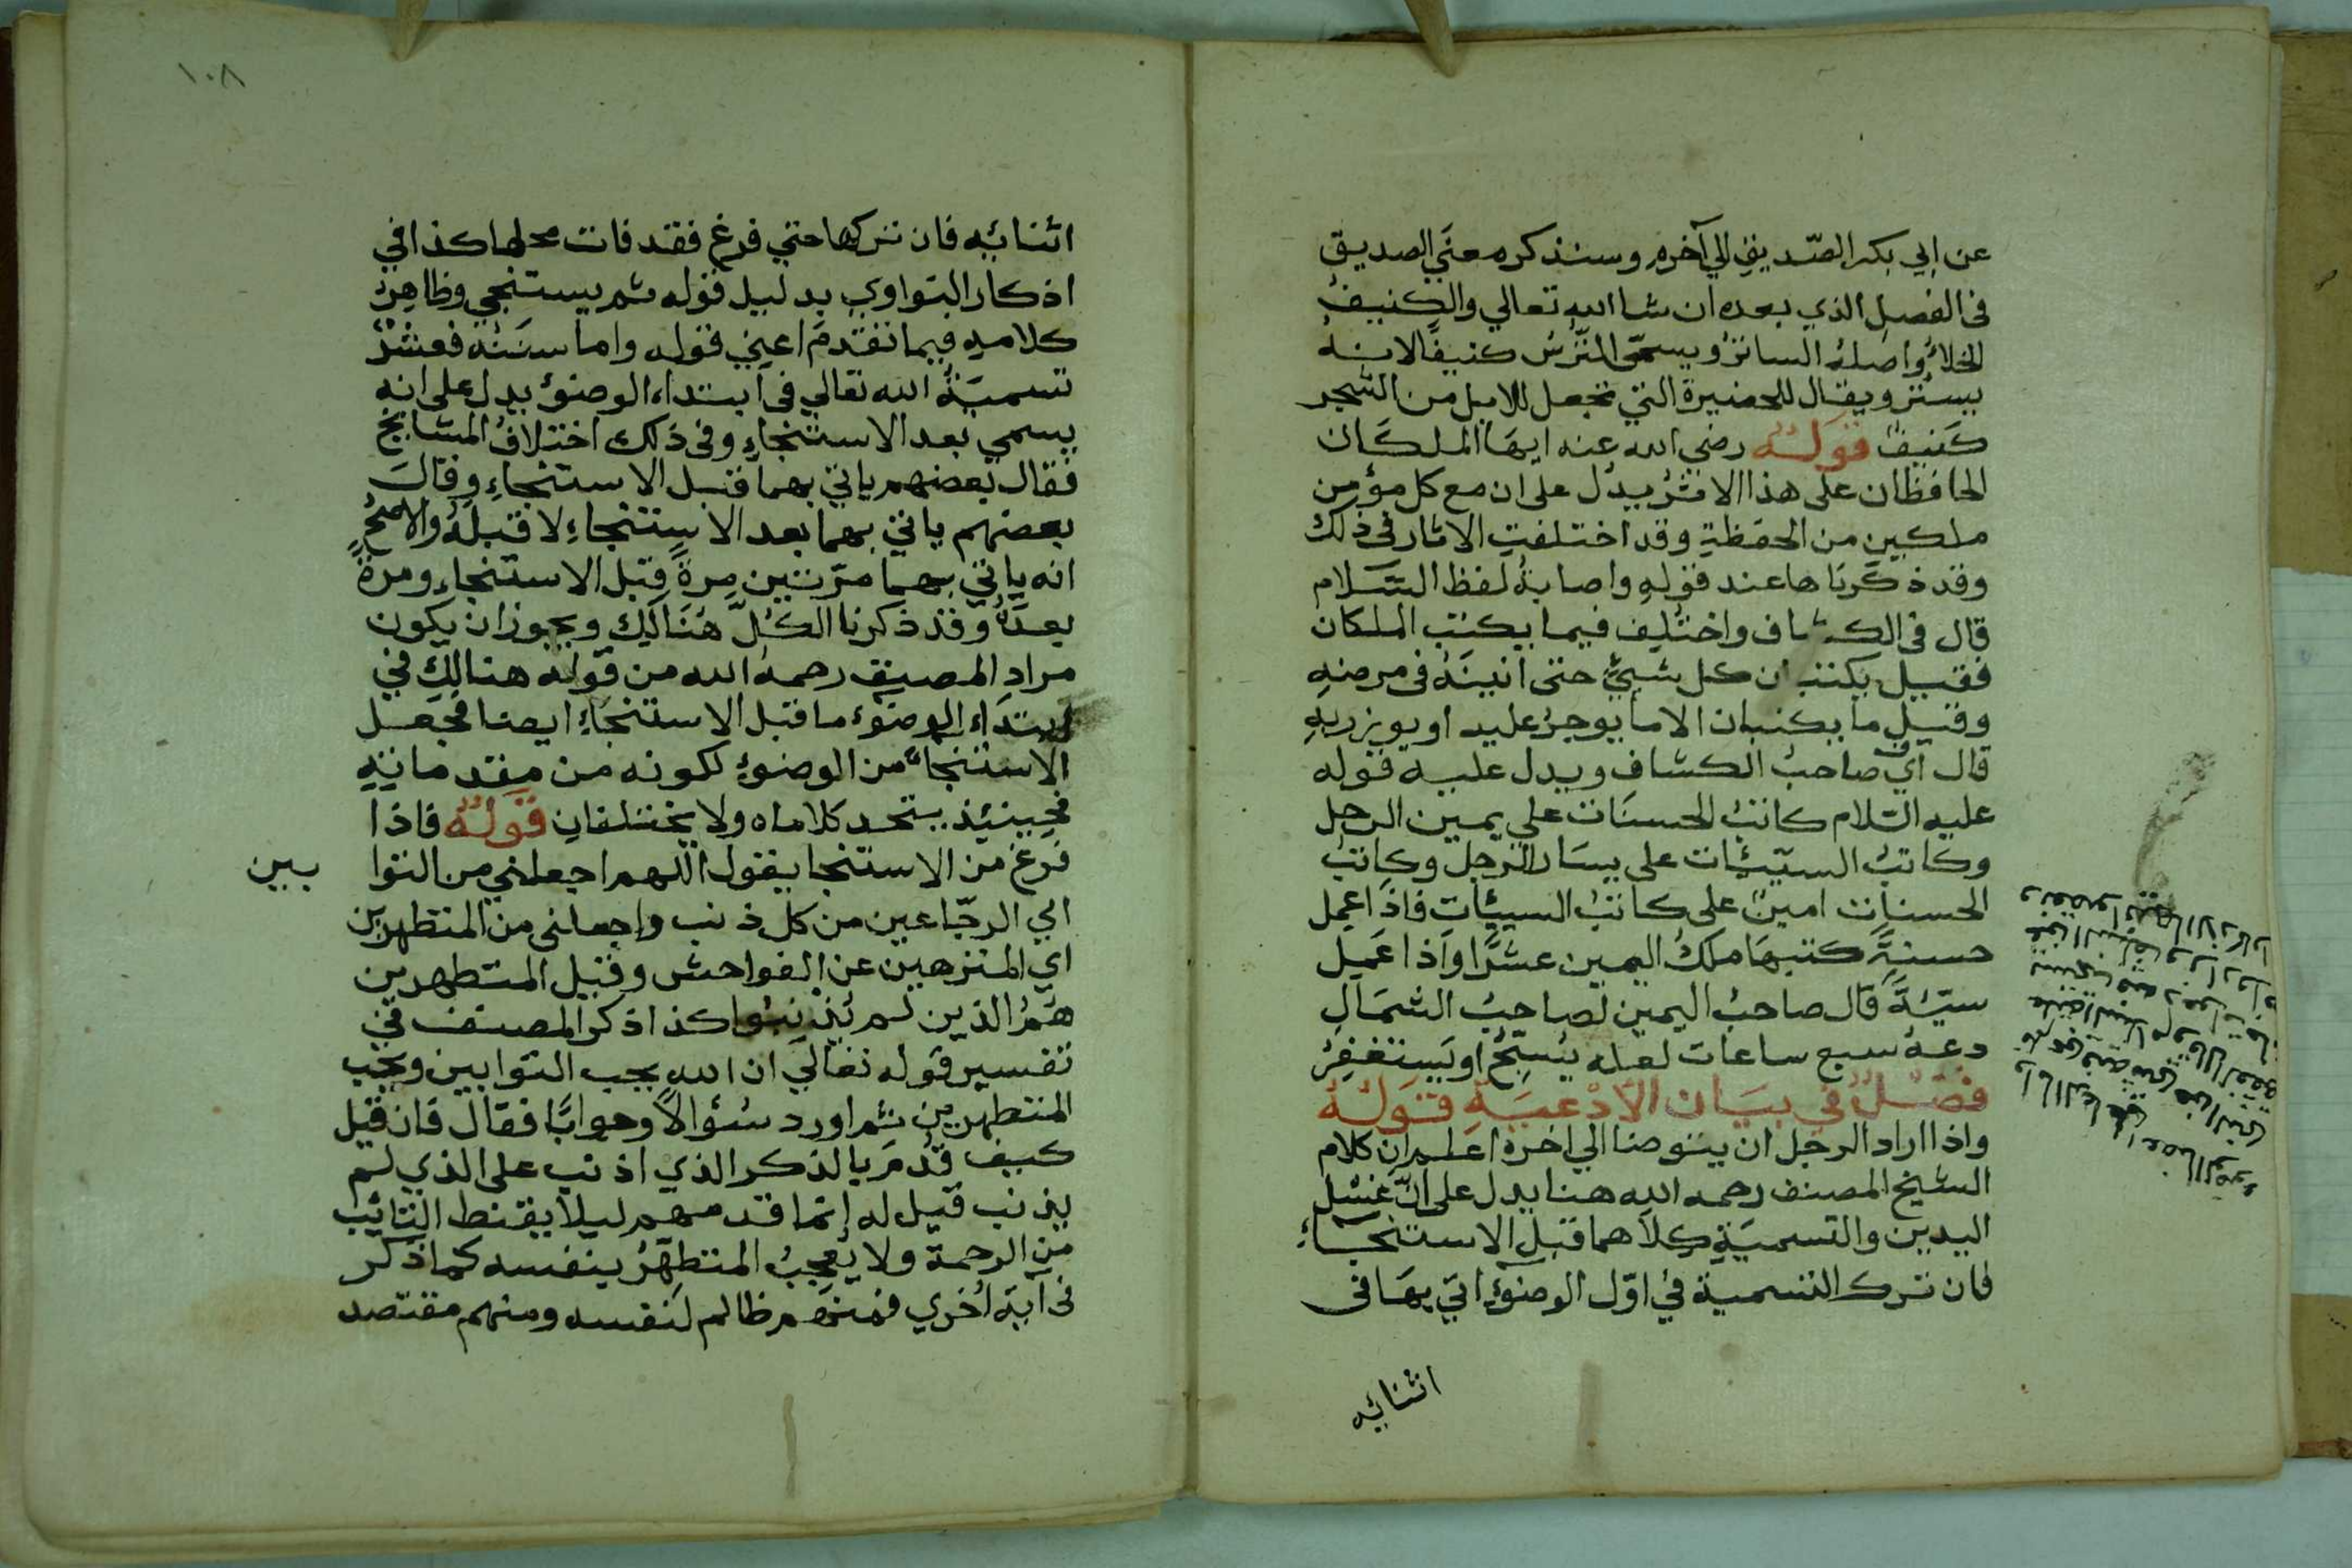 عن ابي بكر الصّديق الي آخره وسنذكر معنَي الصديق
في الفصل الذي بعده ان شا الله تعالي والكنيفُ
الخلاءُ واصلهُ الساتر ويسمّى التُّرسُ كنيفًا لانهُ
يستُر ويقال للحضيرة التي تجعل للابل من الشجر
كَنيف قولهُ رضي الله عنه ايهَا الملكَان
الحافظان على هذا الاثر يدُل على ان مع كل مؤمن
ملكين من الحفظةِ وقد اختلفتِ الاثار في ذلك
وقد ذكرنَاها عند قولهِ واصابةُ لفظ السّلام
قال في الكشاف واختُلِف فيما يكتب الملكان
فقيل يكتبان كل شيءٍ حتى انينَهُ في مرضهِ
وقيل ما يكتبان الا ما يوجرُ عليه او يوزر بهِ
قال اي صاحبُ الكشاف ويدل عليه قوله
عليه السلام كاتبُ الحسنَات على يمين الرجل
وكاتبُ السيّئات على يسار الرجل وكاتبُ
الحسنات امينٌ على كاتب السيئات فاذا عمِل
حسنةً كتبهَا ملكُ اليمين عشرًا واذا عَمِل
سيّئةً قال صاحبُ اليمين لصاحبُ الشمَالِ
دعهُ سبع ساعات لعله يُسبّحُ او يَستغفِرُ
فصْلٌ في بيَان الأدْعيَةِ قولهُ
واذا اراد الرجل ان يتوضا الي اخره اعلم ان كلام
الشيخ المصنف رحمه الله هنا يدل على انّ غسْل
اليدين والتسميَةِ كِلاَهما قبل الاستنجَاءِ
فان ترك التسمية في اوّل الوضوءِ اتي بهَا في
اثنائيه
١٠٨
اثنائيه فان تركها حتي فرغ فقد فات محلها كذا في
اذكار النواوي بدليل قوله ثم يستنجي وظاهِرُ
كلامهِ فيما تقدم اعني قوله واما سنَنهُ فعشْرٌ
تسميَةُ الله تعالي في ابتداء الوضوء يدل على انه
يسمي بعد الاستنجاءِ وفي ذلك اختلافُ المشايخ
فقال بعضهم ياتي بهما قبل الاستنجاءِ وقالَ
بعضهم ياتي بهما بعد الاستنجاءِ لا قبلهُ والاصحُّ
انه ياتي بهما مرّتين مرةً قبل الاستنجاءِ ومرةً
بعدَهُ وقد ذكرنا الكلّ هُنَالِكَ ويجوز ان يكون
مراد المصنِف رحمه الله من قوله هنالِك في
ابتداء الوضوء ما قبل الاستنجاءِ ايضا فجعل
الاستنجاء من الوضوءِ لكونه من مقدماتهِ
فحِينئِذ يتحد كلاماه ولا يختلفانِ قولهُ فاذا
فرغ من الاستنجا يقول اللهم اجعلني من التوا بين
اي الرجّاعين من كل ذنب واجعلني من المتطهرين
اي المتنزهين عن الفواحش وقيل المتطهرين
هُمُ الذين لم يُذنبُوا كذا ذكر المصنف في
تفسير قوله تعالَي ان الله يحب التوابين ويحب
المتطهرين ثم اورد سُؤالاً وجوابًا فقال فان قيل
كيف قدّم بالذكر الذي اذنب على الذي لم
يذنب قيل له إنما قدمهم ليلا يقنط التائب
من الرحمة ولا يُعجِبُ المتطهِرُ بنفسه كما ذكر
في آية اُخري فمنهُم ظالم لنفسه ومنهم مقتصد